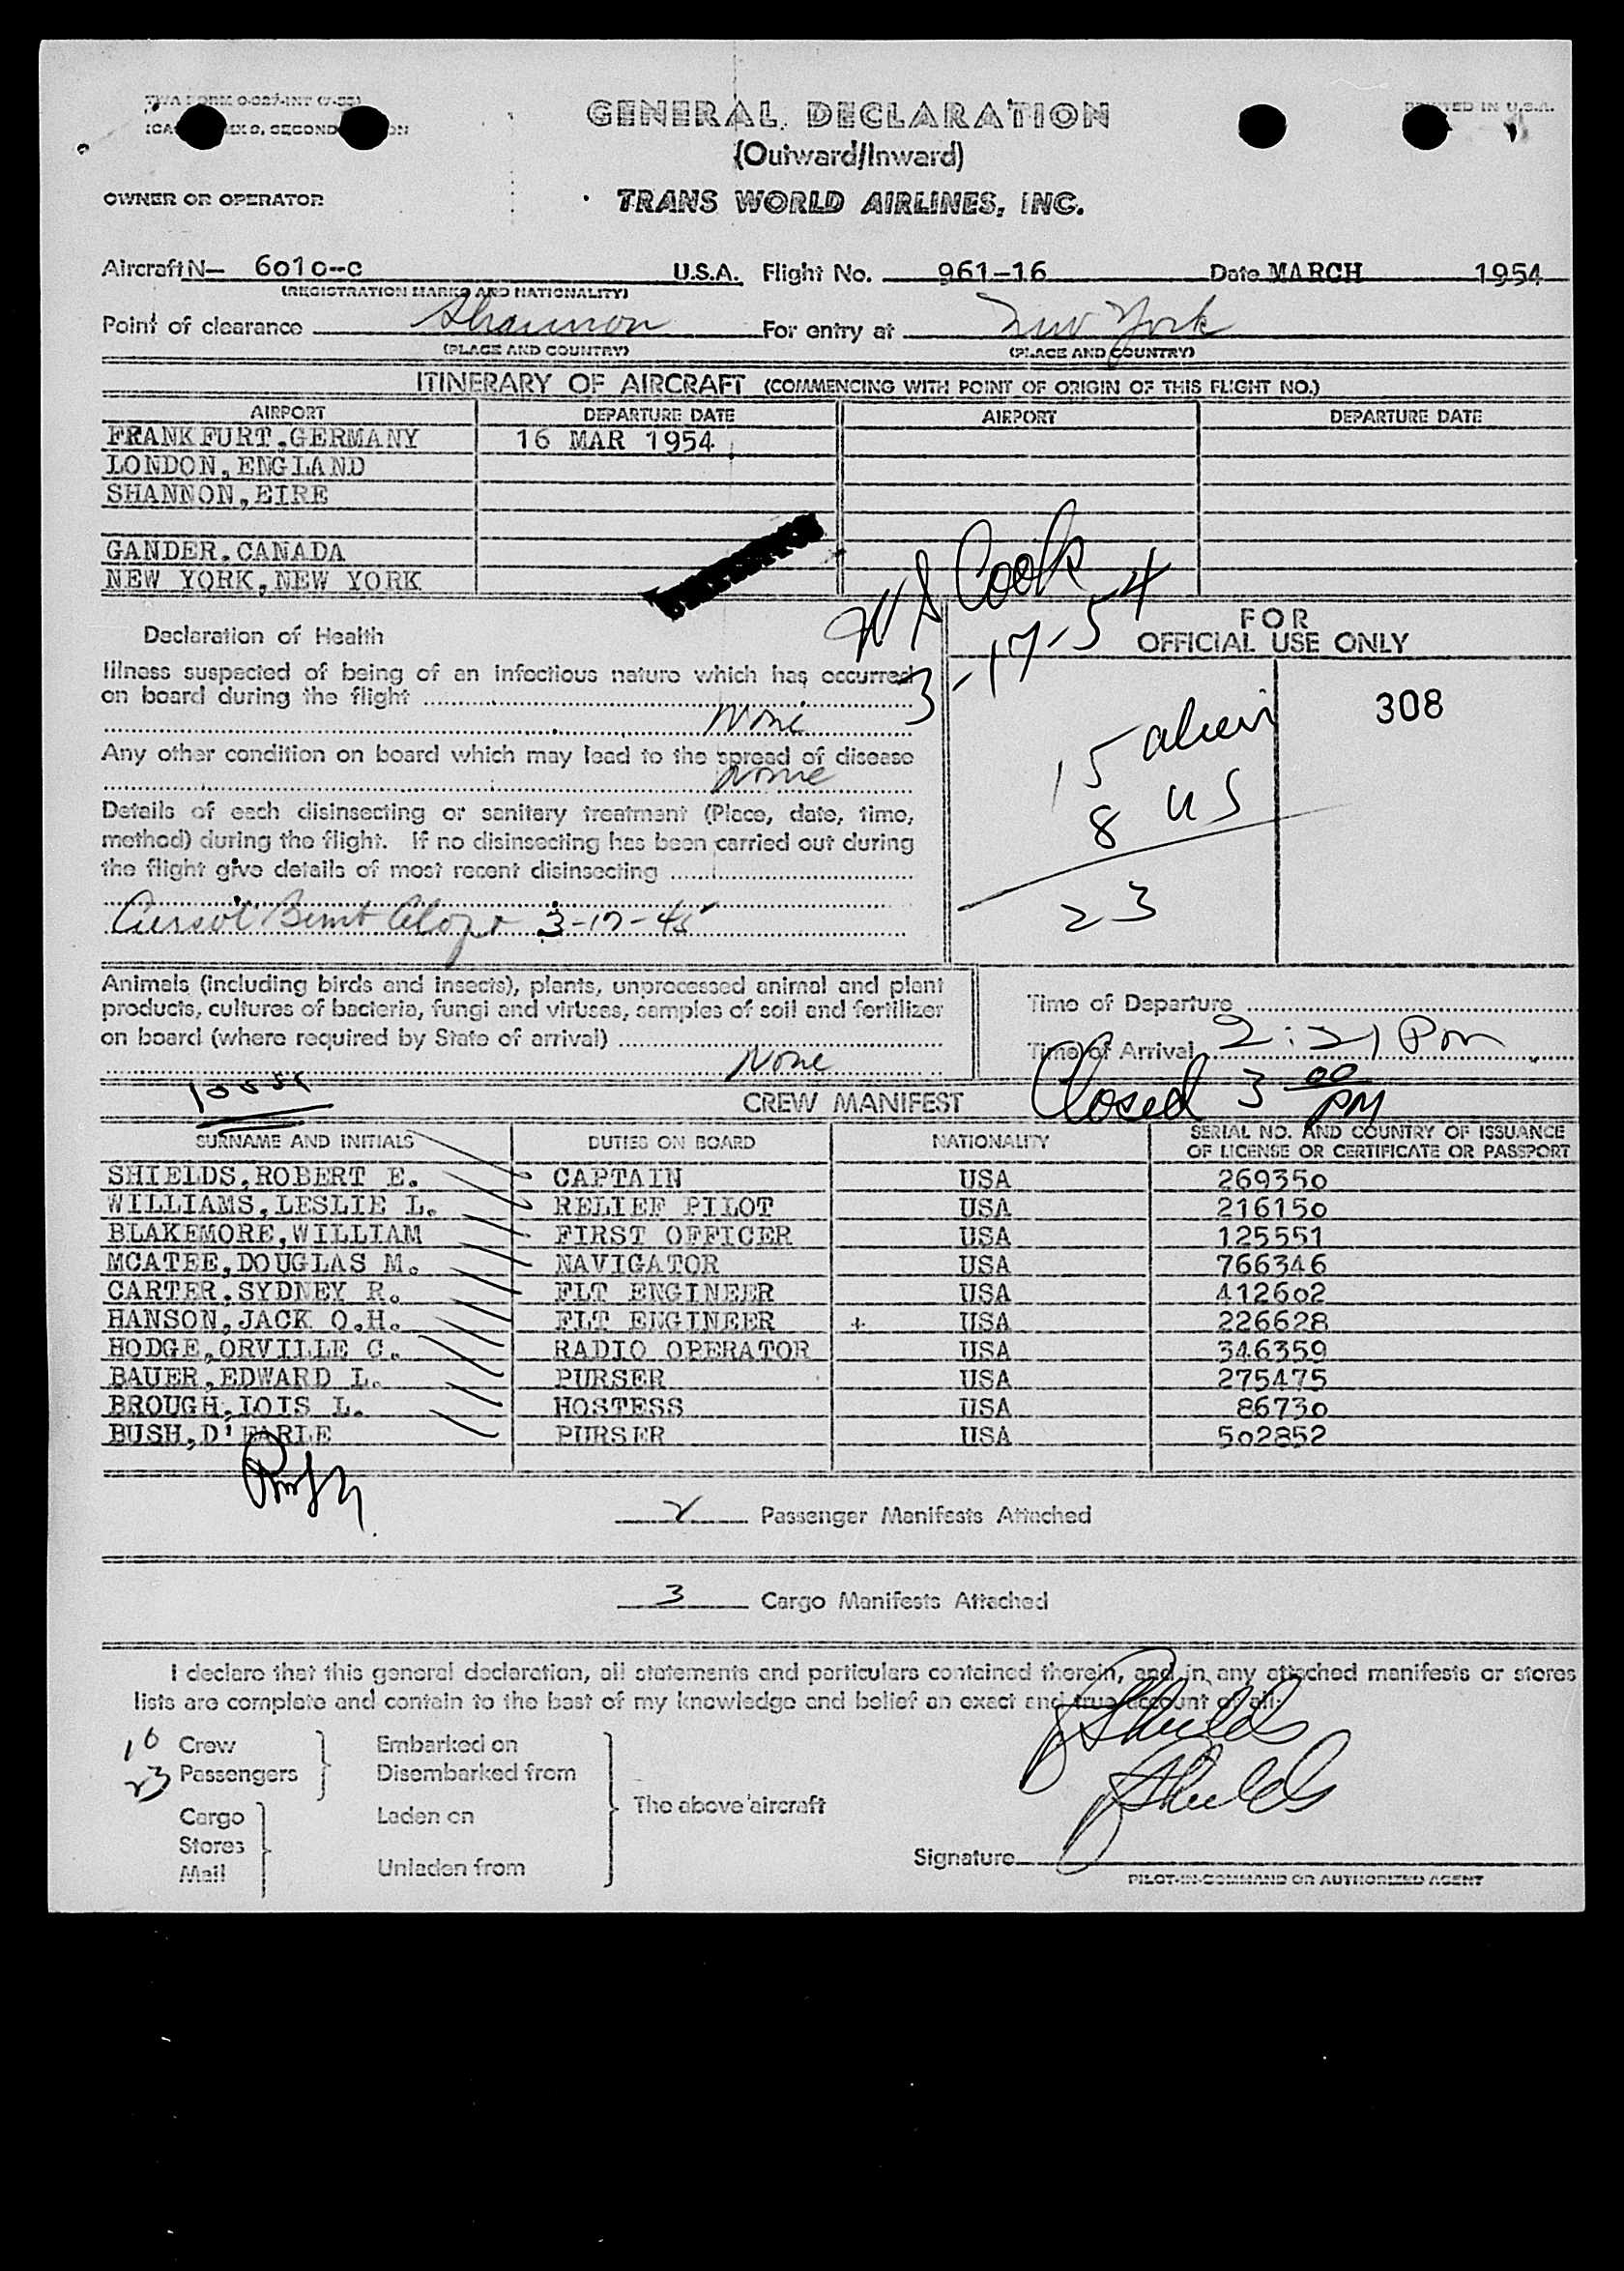 TWA FORM O-027-INT (7-53)
PRINTED IN U.S.A.
SECOND
GENERAL DECLARATION
(Outward/Inward)
OWNER OR OPERATOR
TRANS WORLD AIRLINES, INC.
Aircraft N- 6010-C U.S.A. Flight No. 961-16 Date MARCH 1954
(REGISTRATION MARKS AND NATIONALITY)
Point of clearance Shannon For entry at New York
(PLACE AND COUNTRY) (PLACE AND COUNTRY)
ITINERARY OF AIRCRAFT (COMMENCING WITH POINT OF ORIGIN OF THIS FLIGHT NO.)
AIRPORT DEPARTURE DATE AIRPORT DEPARTURE DATE
FRANKFURT,GERMANY 16 MAR 1954
LONDON,ENGLAND
SHANNON,EIRE
GANDER,CANADA
NEW YORK,NEW YORK
W S Cook
3-17-54
FOR
OFFICIAL USE ONLY
308
15 alien
8 US
23
Declaration of Health
Illness suspected of being of an infectious nature which has occurred
on board during the flight
None
Any other condition on board which may lead to the spread of disease
None
Details of each disinsecting or sanitary treatment (Place, date, time,
method) during the flight. If no disinsecting has been carried out during
the flight give details of most recent disinsecting
3-17-45
Animals (including birds and insects), plants, unprocessed animal and plant
products, cultures of bacteria, fungi and viruses, samples of soil and fertilizer
on board (where required by State of arrival)
None
Time of Departure
Time of Arrival 2:21 Pm
Closed 3 00 PM
CREW MANIFEST
SURNAME AND INITIALS DUTIES ON BOARD NATIONALITY SERIAL NO. AND COUNTRY OF ISSUANCE
OF LICENSE OR CERTIFICATE OR PASSPORT
SHIELDS,ROBERT E. CAPTAIN USA 269350
WILLIAMS,LESLIE L. RELIEF PILOT USA 216150
BLAKEMORE,WILLIAM FIRST OFFICER USA 125551
MCATEE,DOUGLAS M. NAVIGATOR USA 766346
CARTER,SYDNEY R. FLT ENGINEER USA 412602
HANSON,JACK O.H. FLT ENGINEER + USA 226628
HODGE,ORVILLE C. RADIO OPERATOR USA 346359
BAUER,EDWARD L. PURSER USA 275475
BROUGH,LOIS L. HOSTESS USA 86730
BUSH,D'EARLE PURSER USA 502852
2 Passenger Manifests Attached
3 Cargo Manifests Attached
I declare that this general declaration, all statements and particulars contained therein, and in any attached manifests or stores
lists are complete and contain to the best of my knowledge and belief an exact and true account of all:
10 Crew Embarked on
23 Passengers Disembarked from
The above aircraft
Cargo Laden on
Stores
Mail Unladen from
Shields
Shields
Signature
PILOT-IN-COMMAND OR AUTHORIZED AGENT